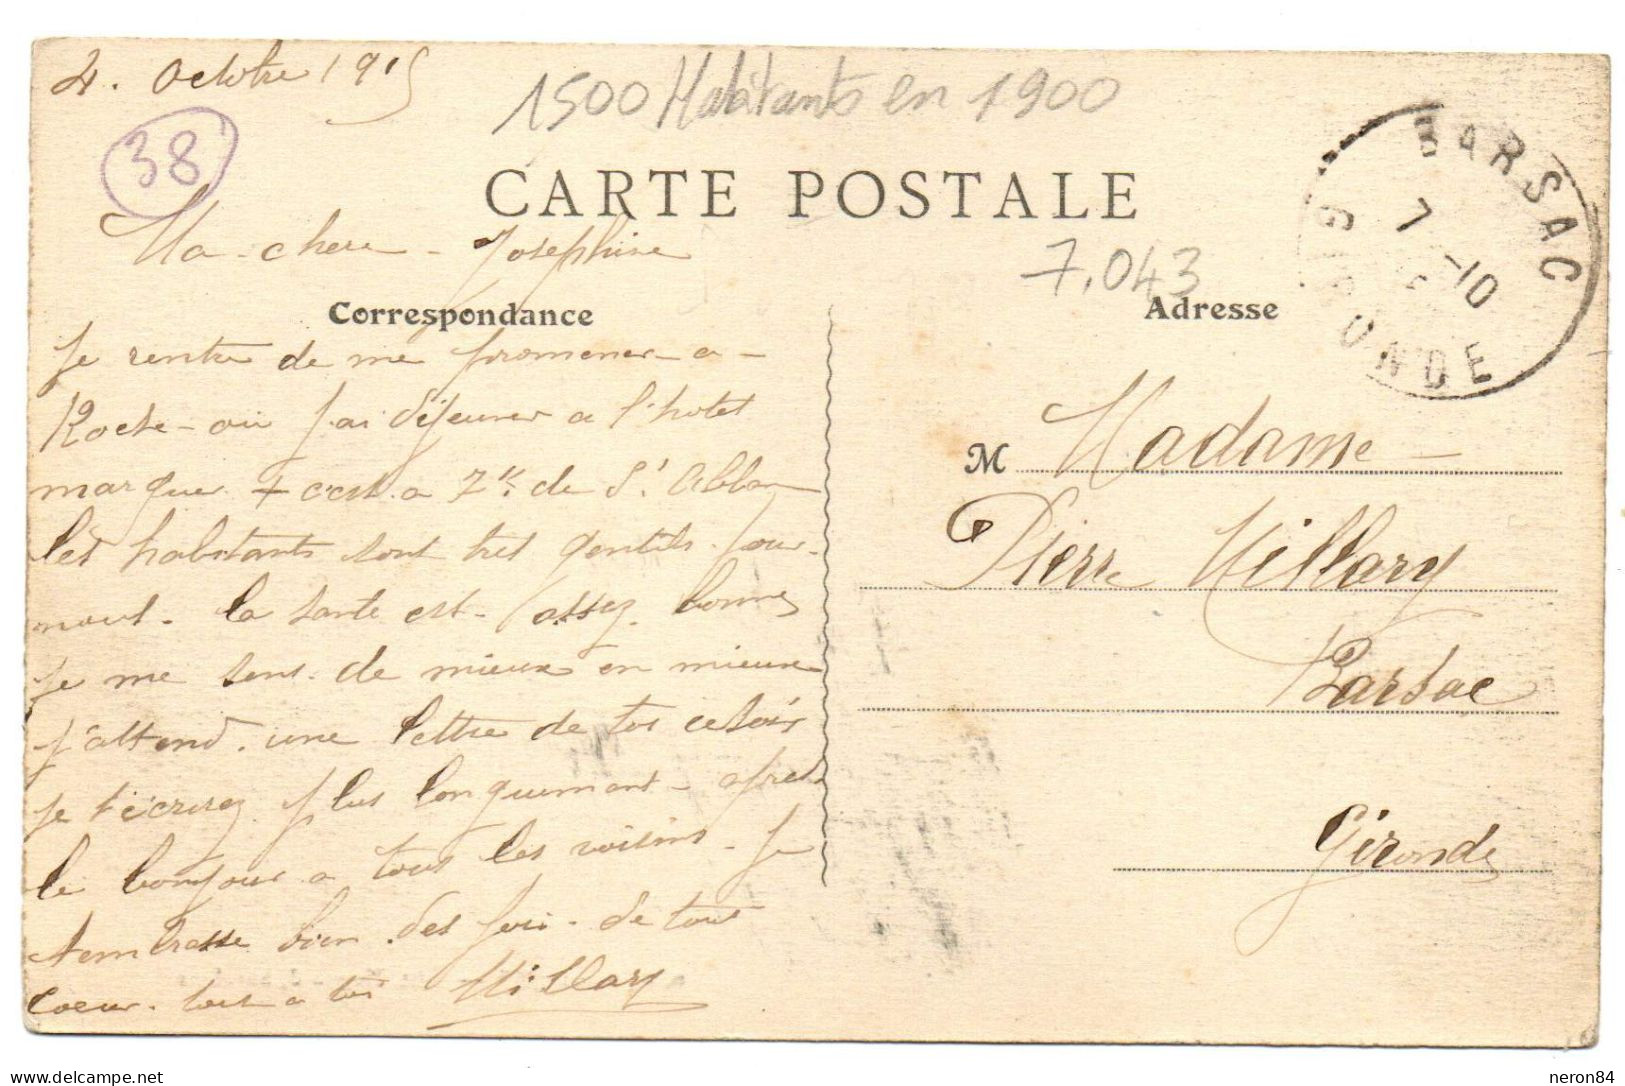 4. Octobre 1915
1500 Habitants en 1900
38
CARTE POSTALE
BARSAC
7 -10
GIRONDE
Ma chere Josephine
7.043
Correspondance
Adresse
Je rentre de me promener a
Roche ou j'ai déjeuner a l'hotel
marquer + c'est a 7 k. de St Alban
les habitants sont tres gentils pour
nous. la santé est assez bonne
je me sens de mieux en mieux
j'attend une lettre de toi ce soir
je t'écrirez plus longuement apres
le bonjour a tout les voisins. Je
t'embrasse bien des fois de tout
coeur tout a toi Millary
M Madame
Pierre Millary
Barsac
Gironde
delcampe.net
neron84